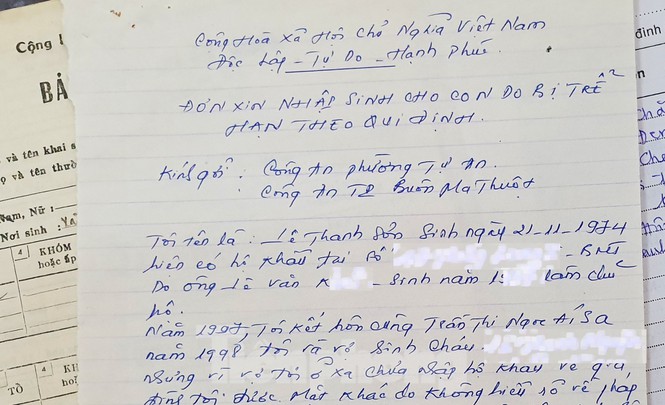 Cộng Hoà Xã Hội Chủ Nghĩa Việt Nam
Độc Lập - Tự Do - Hạnh Phúc.
ĐƠN XIN NHẬP SINH CHO CON DO BỊ TRỄ
HẠN THEO QUI ĐỊNH.
Kính gởi : Công An phường Tự An.
Công An TP Buôn Ma Thuột
Tôi tên là : Lê Thanh Sơn Sinh ngày 21-11-1974
hiện có hộ khẩu tại số - BMT
Do ông Lê Văn K - Sinh năm 1 làm chủ
hộ.
Năm 1997, Tôi kết hôn cùng Trần Thị Ngọc Ái Sa
năm 1998, tôi và vợ sinh cháu
nhưng vì vợ tôi ở xa chưa nhập hộ khẩu về gia
đình tôi được. Mặt khác do không hiểu rõ về pháp
Cộng
BẢ
và tên khai s
ọ và tên thườ
Nam, Nữ :
Nơi sinh :
4 KHÓM
hoặc ấp
TỔ
4 KH
ho
đình